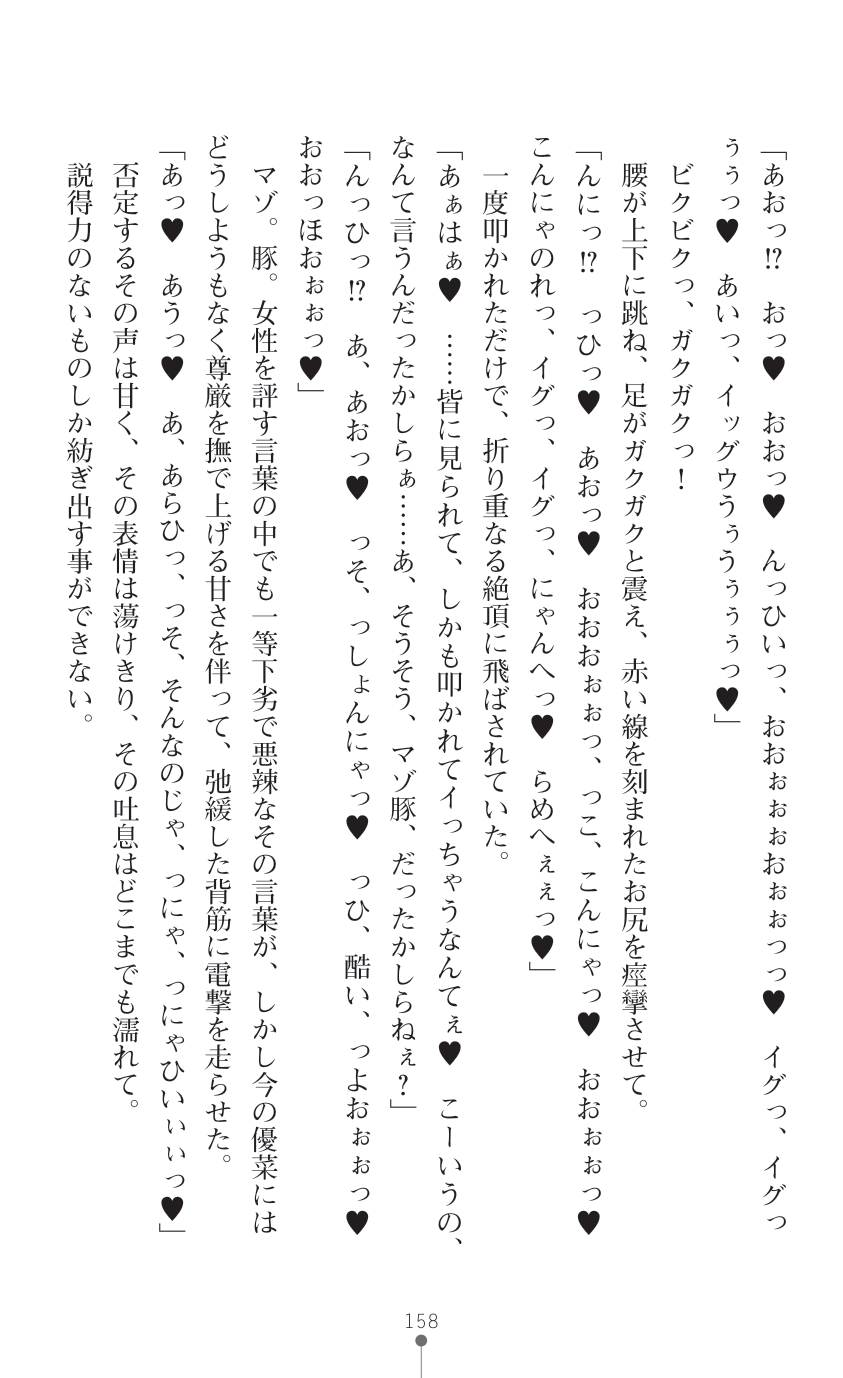 「あおっ!? おっ♥ おおっ♥ んっひいっ、おおぉぉぉおぉぉっっ♥ イグっ、イグっ
ぅぅっ♥ あいっ、イッグウうぅうぅぅぅっ♥」
ビクビクっ、ガクガクっ！
腰が上下に跳ね、足がガクガクと震え、赤い線を刻まれたお尻を痙攣させて。
「んにっ!? っひっ♥ あおっ♥ おおおぉぉっ、っこ、こんにゃっ♥ おおぉぉっ♥
こんにゃのれっ、イグっ、イグっ、にゃんへっ♥ らめへぇぇっ♥」
一度叩かれただけで、折り重なる絶頂に飛ばされていた。
「あぁはぁ♥ ……皆に見られて、しかも叩かれてイっちゃうなんてぇ♥ こーいうの、
なんて言うんだったかしらぁ……あ、そうそう、マゾ豚、だったかしらねぇ？」
「んっひっ!? あ、あおっ♥ っそ、っしょんにゃっ♥ っひ、酷い、っよおぉぉっ♥
おおっほおぉぉっ♥」
マゾ。豚。女性を評す言葉の中でも一等下劣で悪辣なその言葉が、しかし今の優菜には
どうしようもなく尊厳を撫で上げる甘さを伴って、弛緩した背筋に電撃を走らせた。
「あっ♥ あうっ♥ あ、あらひっ、っそ、そんなのじゃ、っにゃ、っにゃひいぃぃっ♥」
否定するその声は甘く、その表情は蕩けきり、その吐息はどこまでも濡れて。
説得力のないものしか紡ぎ出す事ができない。
158